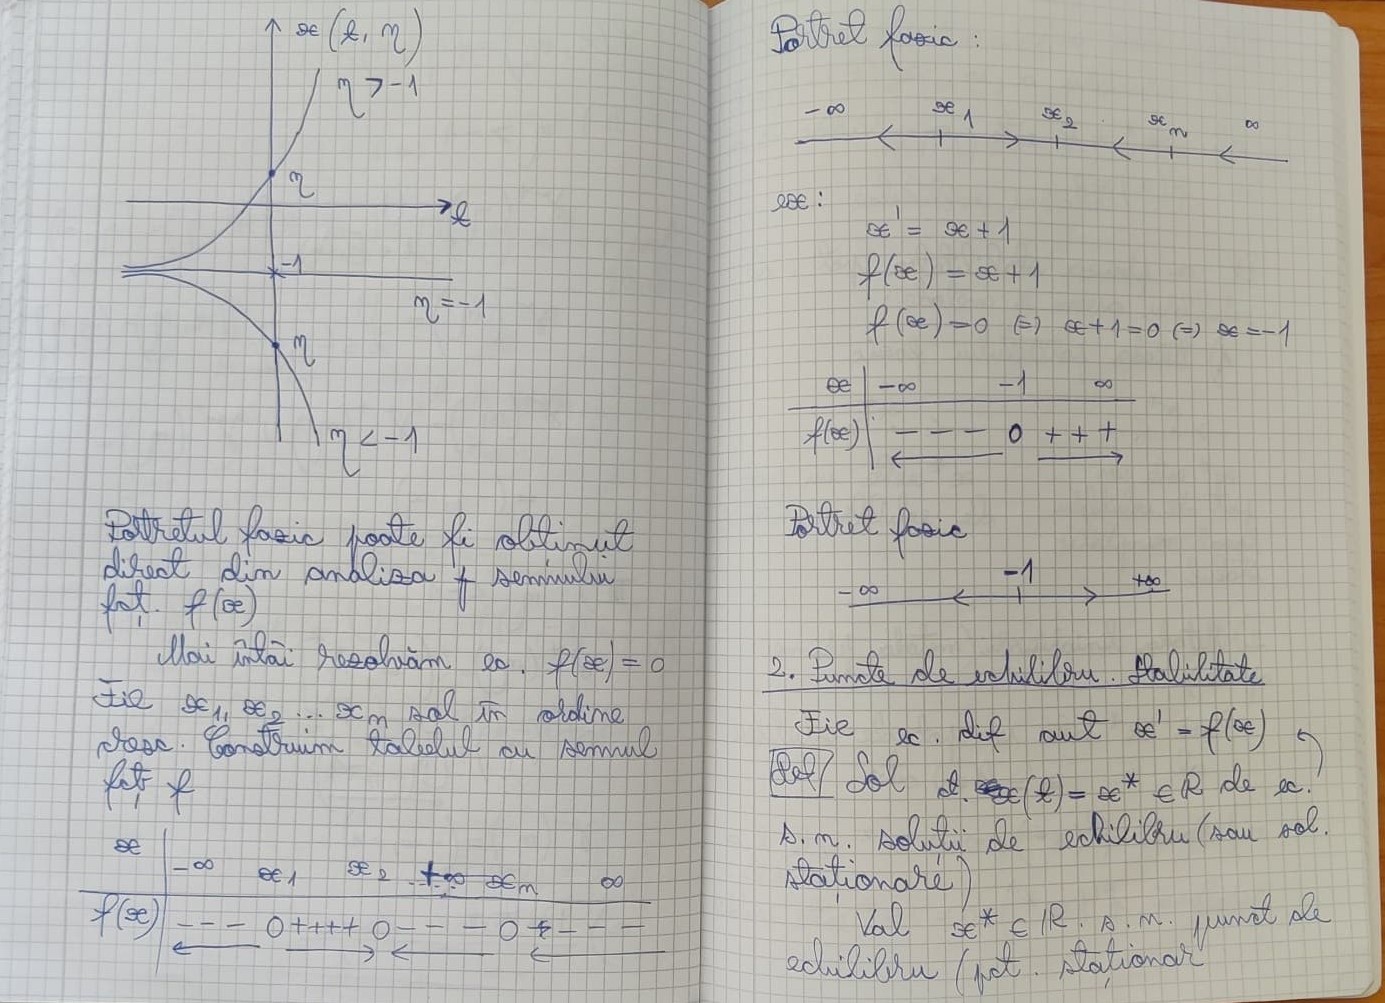 x(t, η)
η > -1
η
t
-1
η = -1
η
η < -1
Portretul fazic poate fi obtinut
direct din analiza semnului
fcț. f(x)
Mai întâi rezolvăm ec. f(x) = 0
Fie x1, x2 ... xn sol în ordine
cresc. Construim tabelul cu semnul
fcț f
x -∞ x1 x2 xn ∞
f(x) - - - 0 + + + + 0 - - - 0 - - -
Portret fazic :
-∞ x1 x2 xn ∞
ex:
x' = x + 1
f(x) = x + 1
f(x) = 0 (=) x + 1 = 0 (=) x = -1
x -∞ -1 ∞
f(x) - - - 0 + + +
Portret fazic
-∞ -1 +∞
2. Puncte de echilibru. Stabilitate
Fie ec. dif aut x' = f(x)
Def Sol x(t) = x* ∈ R de ec.
s.n. soluții de echilibru (sau sol.
staționare)
Val x* ∈ R. s.n. punct de
echilibru (pct. staționar